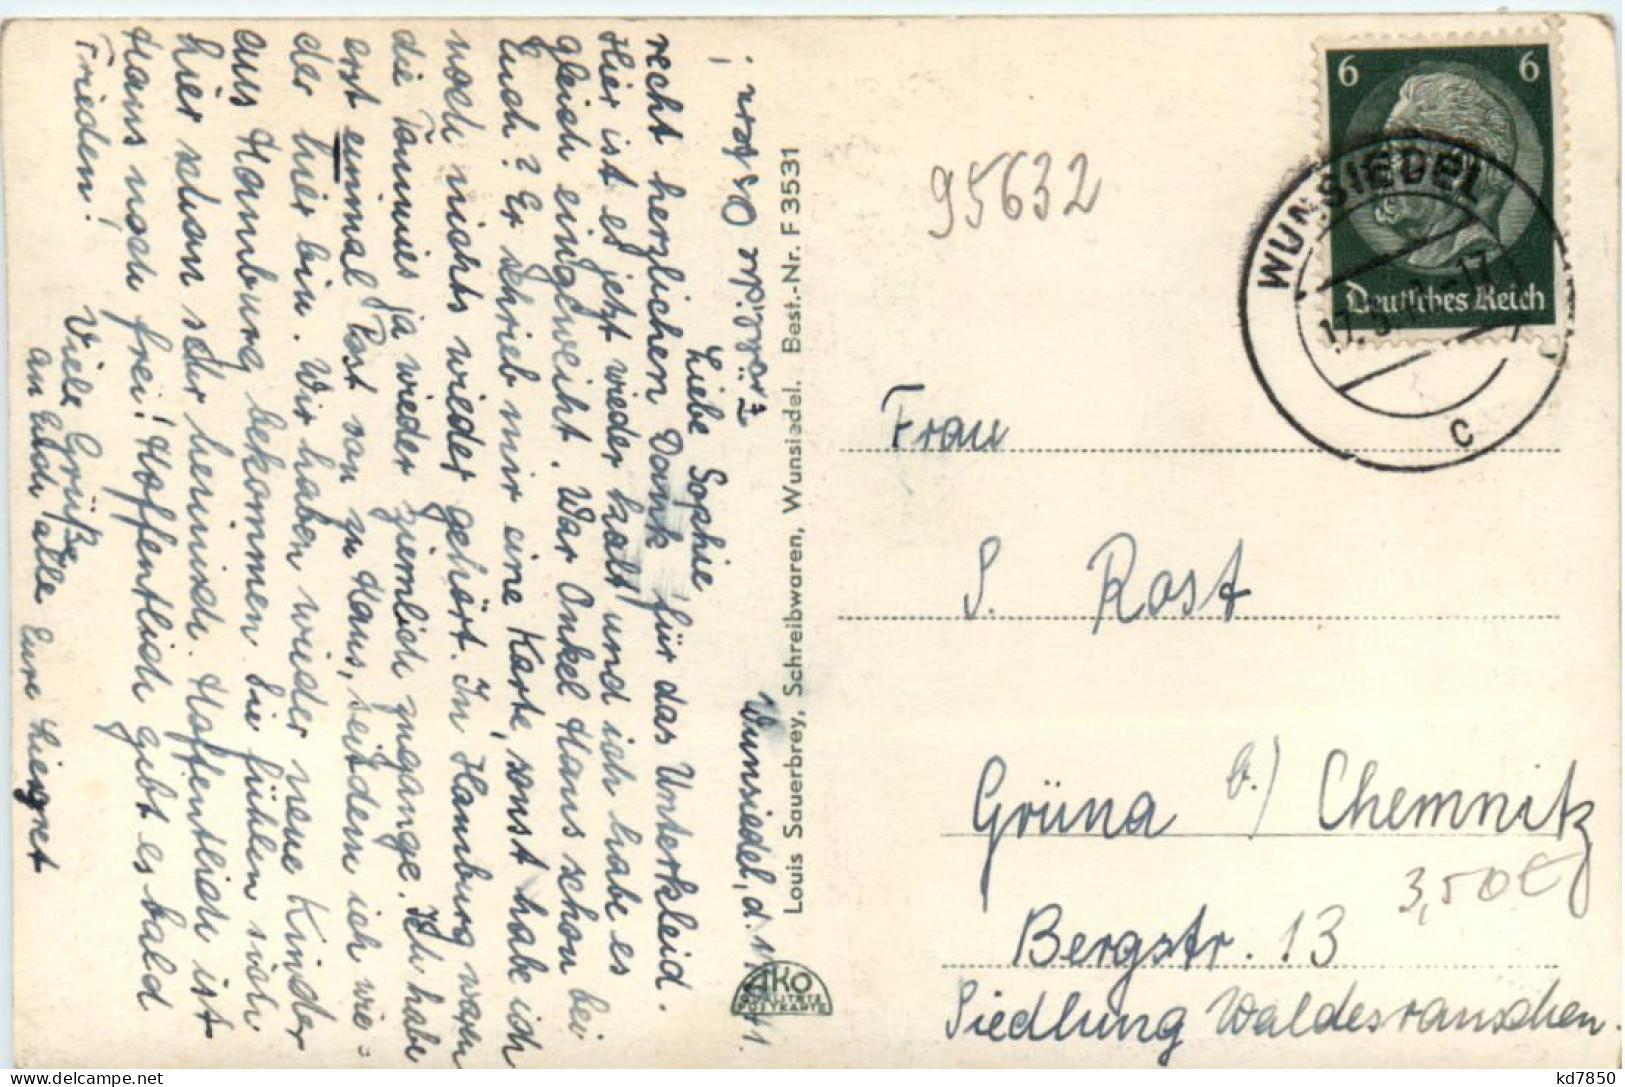 Wunsiedel, d. 17.3.41.
Liebe Sophie
recht herzlichen Dank für das Unterkleid.
Hier ist es jetzt wieder kalt und ich habe es
gleich eingeweiht. War Onkel Hans schon bei
Euch? Er schrieb mir eine Karte, sonst habe ich
noch nichts wieder gehört. In Hamburg wars
die Tommies ja wieder ziemlich zugange. Ich habe
erst einmal Post von zu Haus, seitdem ich wie-
der hier bin. Wir haben wieder neue Kinder
aus Hamburg bekommen. Sie fühlen sich
hier schon sehr heimisch. Hoffentlich ist
Hans noch frei! Hoffentlich gibt es bald
Frieden!
Viele Grüße
an Euch alle Eure Liesgret
Fröhliche Ostern!
Louis Sauerbrey, Schreibwaren, Wunsiedel. Best.-Nr. F 3531
AKO
QUALITÄTS
POSTKARTE
95632
6 6
Deutsches Reich
WUNSIEDEL
c
Frau
S. Rost
Grüna b./ Chemnitz
3,50€
Bergstr. 13
Siedlung Waldesrauschen.
kd7850